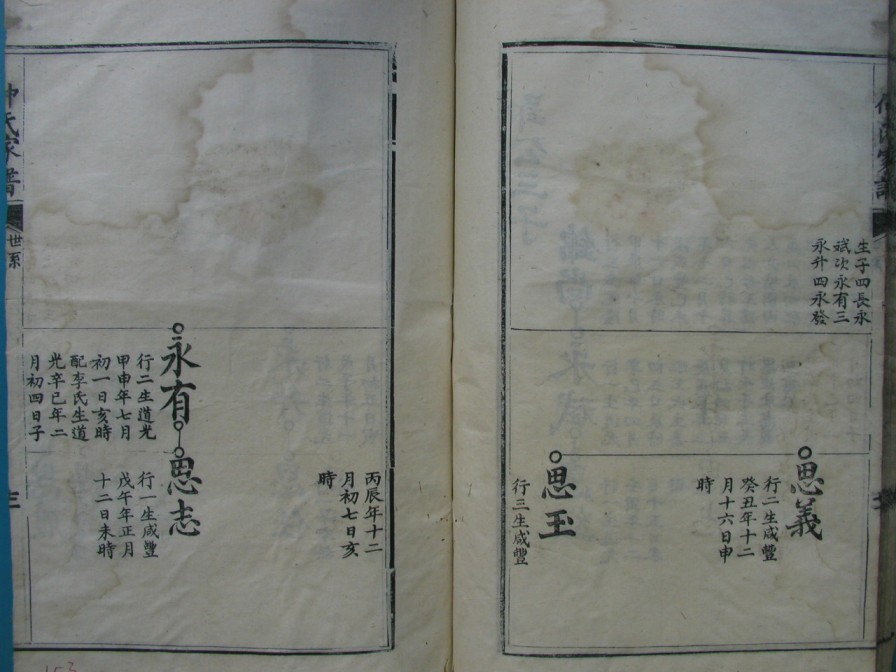 生子四長永
斌次永有三
永升四永發
思義
行二生咸豐
癸丑年十二
月十六日申
時
思玉
行三生咸豐
丙辰年十二
月初七日亥
時
永有
行二生道光
甲申年七月
初一日亥時
配李氏生道
光辛巳年二
月初四日子
思志
行一生咸豐
戊午年正月
十二日未時
氏家譜
世系
三
153